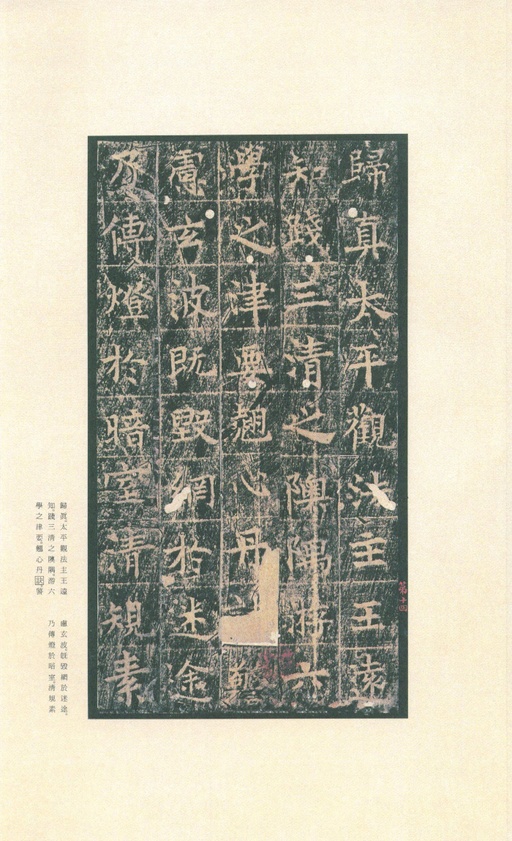 歸真太平觀法主王遠
知踐三清之隩隅游六
學之津要翹心丹
慮玄波既毀網於迷途
乃傳燈於暗室清規素
第十四
歸眞。太平觀法主王遠
知，踐三清之隩隅，游六
學之津要。翹心丹
慮玄波。旣毀網於迷途，
乃傳燈於暗室。清規素